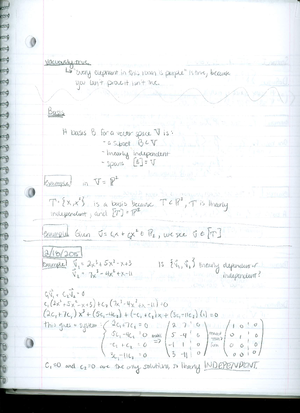 Vacuously true
↳ "every elephant in this room is purple" is true, because
you can't prove it isn't true.
Basis
A basis B for a vector space V is:
- a subset B ⊂ V
- linearly independent
- spans [B] = V
Example in V = P²
T = {x, x²} is a basis because T ⊂ P², T is linearly
independent, and [T] = P²
Example Given v⃗ = c₁x + c₂x² ∈ P₂, we see v⃗ ∈ [T]
Example v⃗₁ = 2x³ + 5x² - x + 3
v⃗₂ = 7x³ - 4x² + x - 11
Is {v⃗₁, v⃗₂} linearly dependent or
independent?
c₁v⃗₁ + c₂v⃗₂ = 0
c₁(2x³ + 5x² - x + 3) + c₂(7x³ - 4x² + x - 11) = 0
(2c₁ + 7c₂)x³ + (5c₁ - 4c₂)x² + (-c₁ + c₂)x + (3c₁ - 11c₂)(1) = 0
This gives system:
2c₁ + 7c₂ = 0
5c₁ - 4c₂ = 0
-c₁ + c₂ = 0
3c₁ - 11c₂ = 0
2 7 | 0
5 -4 | 0
-1 1 | 0
3 -11 | 0
1 0 | 0
0 1 | 0
0 0 | 0
0 0 | 0
C₁=0 and C₂=0 are the only solutions so linearly INDEPENDENT